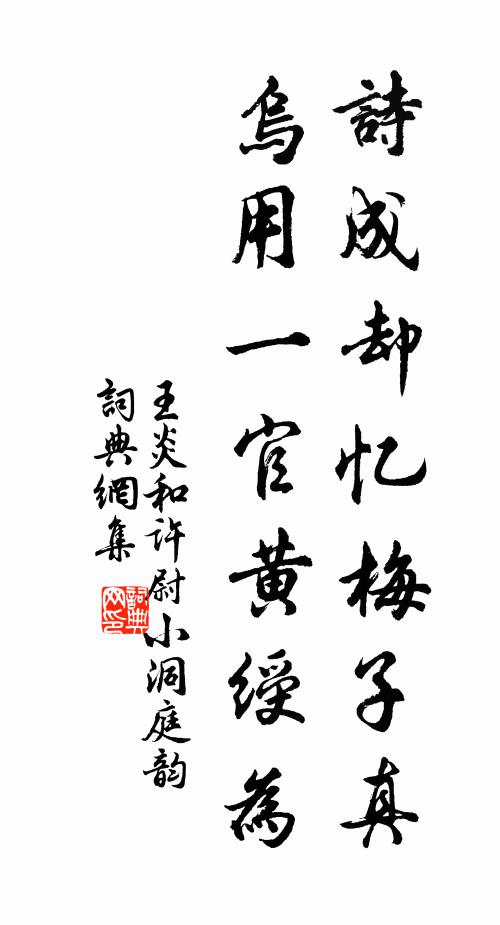 詩成却忆梅子真
烏用一官黄綬為
王炎和许尉小洞庭韵
詞典網集
詞典网印